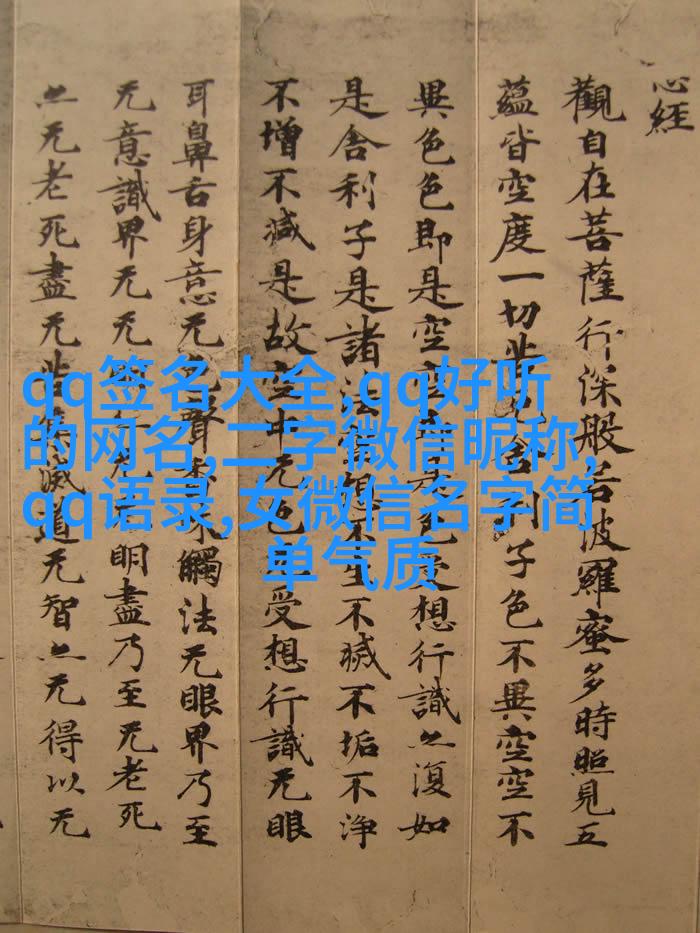 心經
觀自在菩薩行深般若波羅蜜多時照見五
蘊皆空度一切苦厄舍利子色不異空空不
異色色即是空空即是色受想行識亦復如
是舍利子是諸法空想不生不滅不垢不淨
不增不減是故空中无色无受想行識无眼
耳鼻舌身意无色聲香味觸法无眼界乃至
无意識界无无明亦无无明盡乃至无老死
亦无老死盡无苦集滅道无智亦无得以无
qq签名大全,qq好听
的网名,二字微信昵称,
qq语录,女微信名字简
单气质